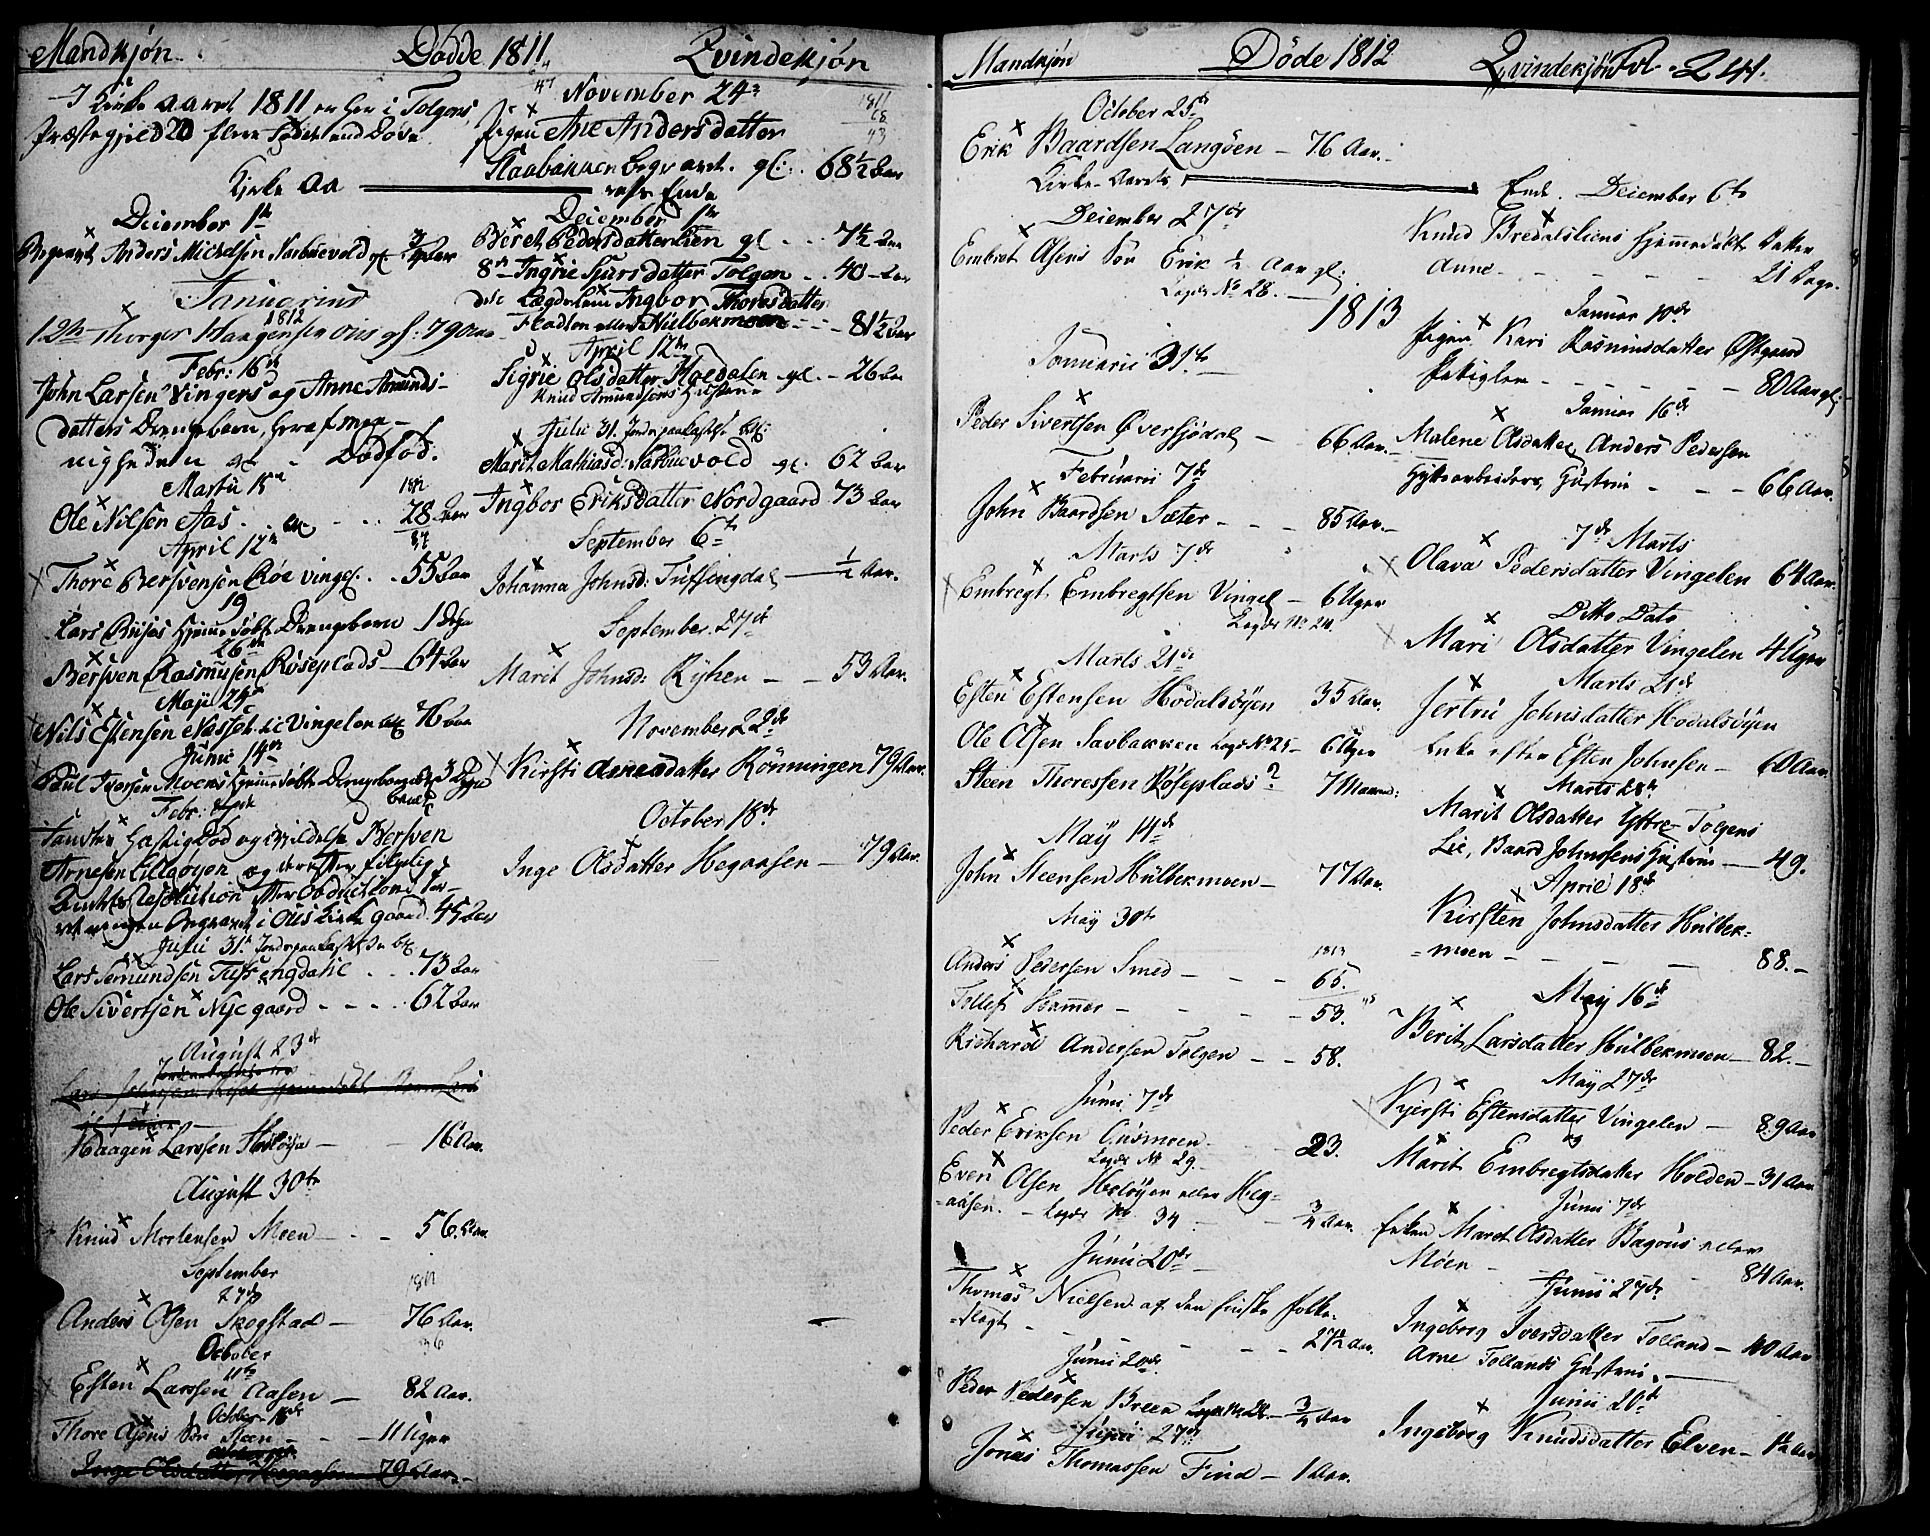 Mandkjøn. Dødde 1811. Qvindekjøn
I Kirke aaret 1811 er her i Tolgens
Præstegield 20 flere fødde end Døde
Kirke Aa
December 1te
Begravet Anders Michelsen Narbuevold gl. 3/4 Aar
Januarius
1812
12te Thorger Haagensen Ous gl: 79 Aar
Febr: 16de
John Larsen Vingens og Anne Amunds-
datters Drengebarn, Dødfød.
Martii 15de
Ole Nilsen Aas 28 Aar
April 12te
Thore Bersvensen Røe Ving gl. 55 Aar
19
Lars Busjøs Hjemmedøbt Drengebarn 1 Dag
26de
Bersven Rasmusen Røseplads 64 Aar
Maji 24de
Nils Estensen Vingelen 76 Aar
Junii 14de
Poul Iversen Moens Hjemmedøbt Drengebarn 3 Dage
Febr:
Bersven
Arnesen Lilleøyen og
Resolution efter Obduction
i Ous Kirkegaard 45 Aar
Julii 31te
Lars Semundsen Tufsingdalie 73 Aar
Ole Sivertsen Nyegaard 62 Aar
August 23de
Haagen Larssen Hesløyen 16 Aar.
August 30te
Knud Mortensen Moen 56 Aar
September
27de
Anders Olsen Skogstad 76 Aar.
October
11te
Esten Larssen Aasen 82 Aar.
October 18de
Thore Olsens Søn Steen 11 Uger
Inge Olsdatter Hegaasen 79 Aar
November 24de
Pigen Ane Andersdatter
Staabakken begravet. gl: 68 1/2 Aar
rets Ende
December 1te
Beret Pedersdatter Lien gl 7 1/2 Aar
8de Ingrie Sjursdatter Tolgen 40 Aar
dito Lægdslem Ingbor Thoresdatter
Fladten eller Hulbekmoen 81 1/2 Aar
April 12te
Sigrie Olsdatter Hoedalen gl. 26 Aar
Knud Amundsøns Hustrue
Julii 31.
Marit Mathiasd: Narbuevold gl. 62 Aar
Ingbor Eriksdatter Nordgaard 73 Aar
September 6te
Johanna Johnsd: Tufsingdal 1/2 Aar.
September 27de
Marit Johnsd: Ryhen 53 Aar.
November 22de
Kirsti Arnesdatter Rønningen 79 Aar.
October 18de
Inge Olsdatter Hegaasen 79 Aar.
Mandkjøn Døde 1812 Qvindekjøn Fol. 241.
October 25de
Erik Baardsen Langøen 76 Aar.
Kirke-Aarets
December 27de
Embret Asens Søn Erik 1/2 Aar gl:
Lægds No 28.
1813
Januarii 31te
Peder Sivertsen Øversjødal 66 Aar.
Februarii 7de
John Baardsen Sæter 85 Aar.
Marts 7de
Embregt Embregtsen Vingel 6 Uger
Lægds No 24.
Marts 21de
Esten Estensen Hodalsøyen 35 Aar.
Ole Olsen Savbakken Lægds No 25 6 Uger
Steen Thoressen Røseplads? 7 Maaned:
May 14de
John Steensen Hulbekmoen 77 Aar.
May 30te
1813
Anders Pedersen Smed 65.
Tollef Kammer 53.
Richard Andersen Tolgen 58.
Junii 7de
Peder Eriksen Ousmoen 23.
Lægds No 29.
Even Olsen Hesløyen eller Heg=
=aasen. Lægds No. 34 3/4 Aar.
Junii 20de
Thomas Nielsen af den finske Folke-
=slægt 27 1/2 Aar.
Junii 20de
Peder Pedersen Breen Lægds No 28. 3/4 Aar
Junii 27de
Jonas Thomassen Find 1 Aar.
Ende. December 6te
Knud Bredalsliens Hjemmedøbt Datter
Anne 21 Dage.
Januar 10de
Pigen Kari Rasmusdatter Østgaard
80 Aar gl:
Januar 16de
Malene Olsdatter Anders Pedersen
Hyttearbeiders Hustrue 66 Aar.
7de Marts
Olava Pedersdatter Vingelen 64 Aar.
Ditto Dato
Mari Olsdatter Vingelen 4 Uger
Marts 21de
Jertru Johnsdatter Hodalsøyen
Enke efter Esten Johnsen 60 Aar.
Marts 28de
Marit Olsdatter Yttre Tolgens
Lie, Baard Johnsens Hustrue 49.
April 18de
Kirsten Johnsdatter Hulbek=
=moen 88.
May 16de
Berit Larsdatter Hulbekmoen 82.
May 27de
Kjersti Estensdatter Vingelen 89 Aar
Marit Embregtsdatter Holden 31 Aar
Junii 7de
Enken Maret Olsdatter Bagous eller
Moen 84 Aar.
Junii 27de
Ingeborg Iversdatter Tolland 40 Aar
Arne Tollands Hustrue.
Junii 20de
Ingeborg Knudsdatter Elven 1 1/2 Aar